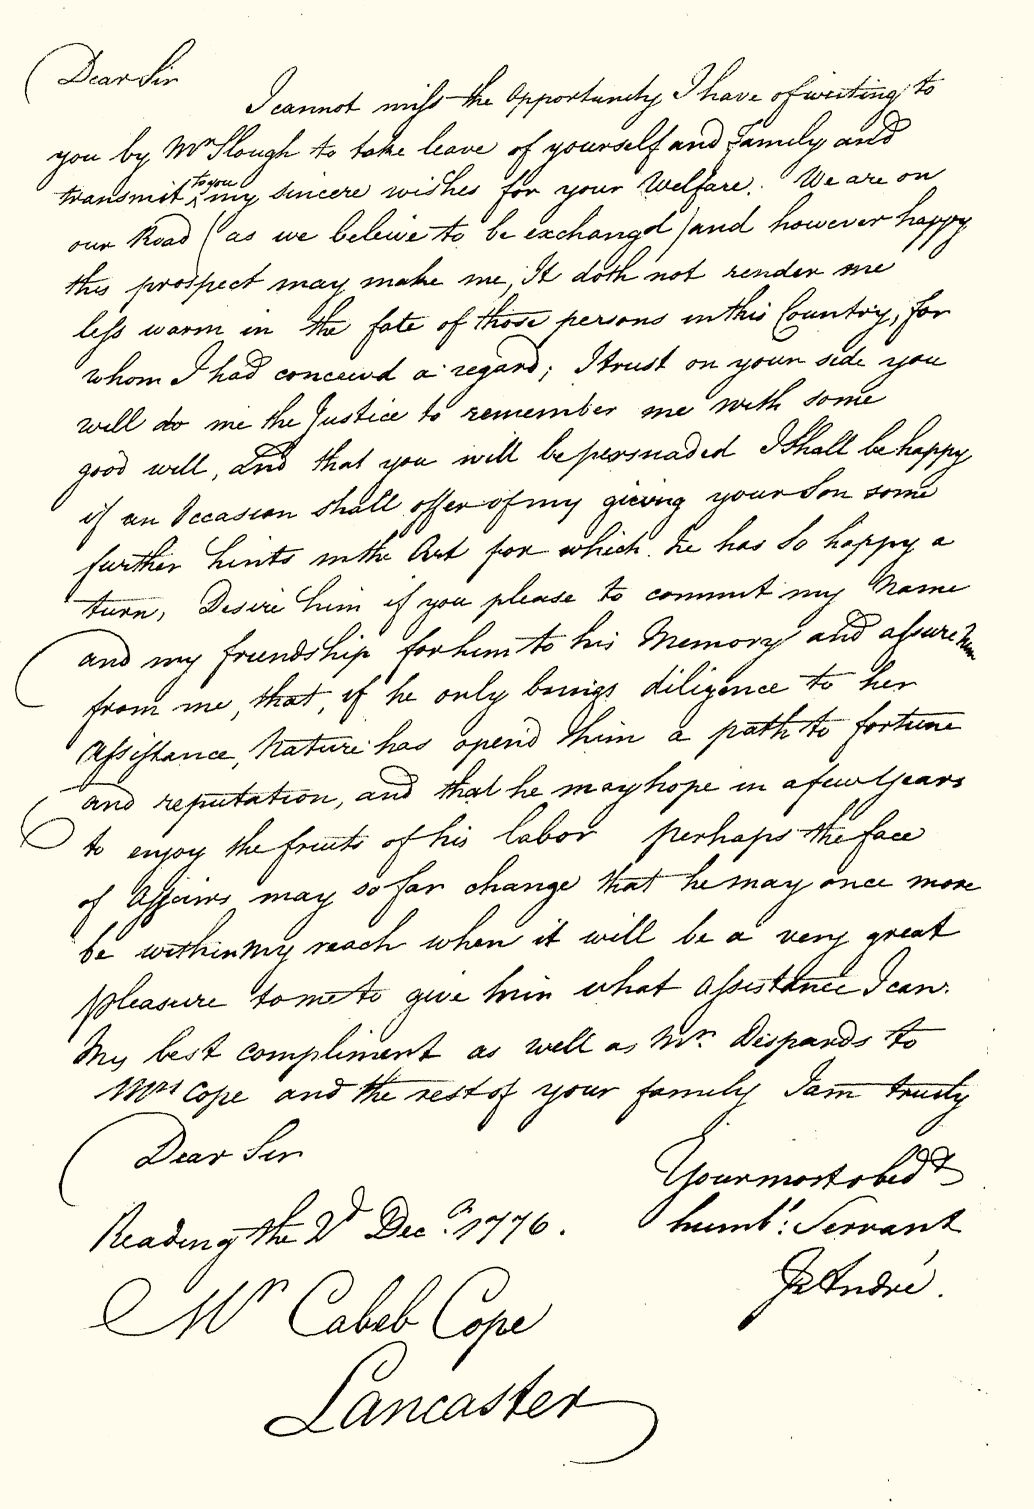 Dear Sir
I cannot miss the Opportunity I have of writing to
you by Mr Slough to take leave of yourself and Family and
to you
transmit ^ my sincere wishes for your Welfare. We are on
our Road (as we beleive to be exchangd) and however happy
this prospect may make me, It doth not render me
less warm in the fate of those persons in this Country, for
whom I had conceivd a regard; I trust on your side you
will do me the Justice to remember me with some
good will, and that you will be persuaded I shall be happy
if an Occasion shall offer of my giving your Son some
further hints in the Art for which he has so happy a
turn, Desire him if you please to commit my Name
and my friendship for him to his Memory and assure him
from me, that, if he only brings diligence to her
Assistance, Nature has open'd him a path to fortune
and reputation, and that he may hope in a few Years
to enjoy the fruits of his labor perhaps the face
of Affairs may so far change that he may once more
be within my reach when it will be a very great
pleasure to me to give him what Assistance I can.
My best compliment as well as Mr. Dispards to
Mrs Cope and the rest of your family I am truly
Dear Sir
Your most obedt
humbl: Servant
Reading the 2d Decr. 1776.
Jn André.
Mr Cabeb Cope
Lancaster